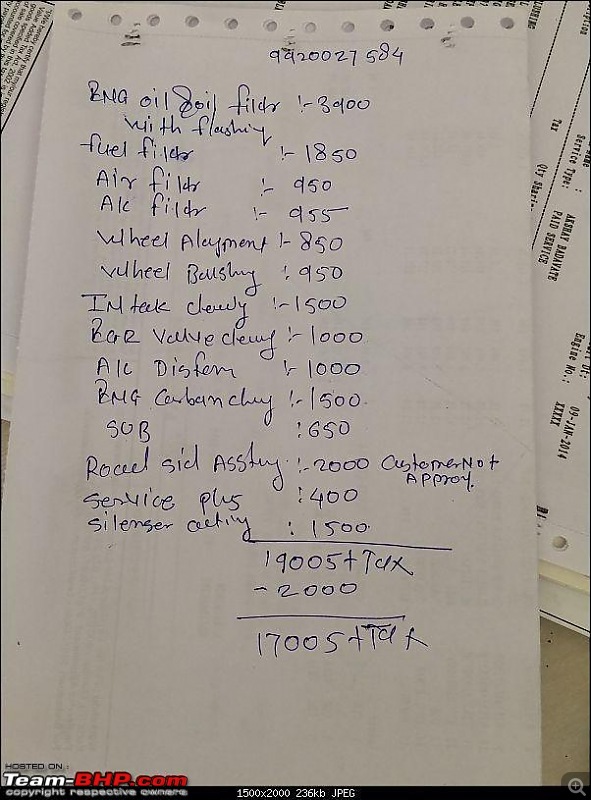 9920027584
ENG oil & oil filtr :- 3900
with flashing
fuel filtr :- 1850
Air filtr :- 950
A/c filtr :- 955
Wheel Alaynment :- 850
Wheel Balshng : 950
INteck cleany :- 1500
EGR Valve cleany :- 1000
A/c Disfern :- 1000
ENG Carban cleng :- 1500
SOB : 650
Road sid Assting :- 2000 Customer Not
Approv.
service plus : 400
silenser cotting : 1500
19005 + Tax
- 2000
17005 + Tax
Service Type: PAID SERVICE
AKSHAY BADAVATE
Engine No.: XXXX
09-JAN-2014
Tax
HOSTED ON :
Team-BHP.com
copyright respective owners
1500x2000 236kb JPEG